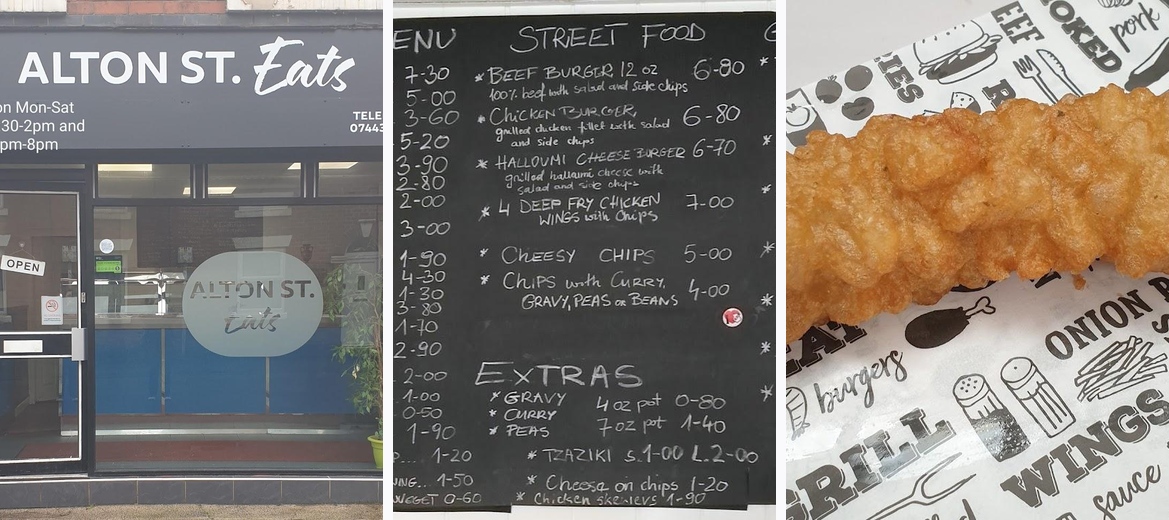 ALTON ST. Eats
on Mon-Sat
30-2pm and
pm-8pm
TELE
07443
OPEN
ALTON ST.
Eats
ENU
7-30
5-00
3-60
5-20
3-90
2-80
2-00
3-00
1-90
4-30
1-30
3-80
1-70
2-90
2-00
1-00
0-50
1-90
1-20
1-50
0-60
STREET FOOD
* BEEF BURGER 12 oz 6-80
100% beef with salad and side chips
* CHICKEN BURGER, 6-80
grilled chicken fillet with salad
and side chips
* HALLOUMI CHEESE BURGER 6-70
grilled halloumi cheese with
salad and side chips
* 4 DEEP FRY CHICKEN 7-00
WINGS with Chips
* CHEESY CHIPS 5-00
* CHIPS with CURRY, 4-00
GRAVY, PEAS OR BEANS
EXTRAS
* GRAVY 4 oz pot 0-80
* CURRY 7 oz pot 1-40
* PEAS
* TZAZIKI S.1-00 L.2-00
* Cheese on chips 1-20
* Chicken skewers 1-90
EEF
OKED
pork
IES
EAT
burgers
ONION R
GRILL
WINGS
sauce